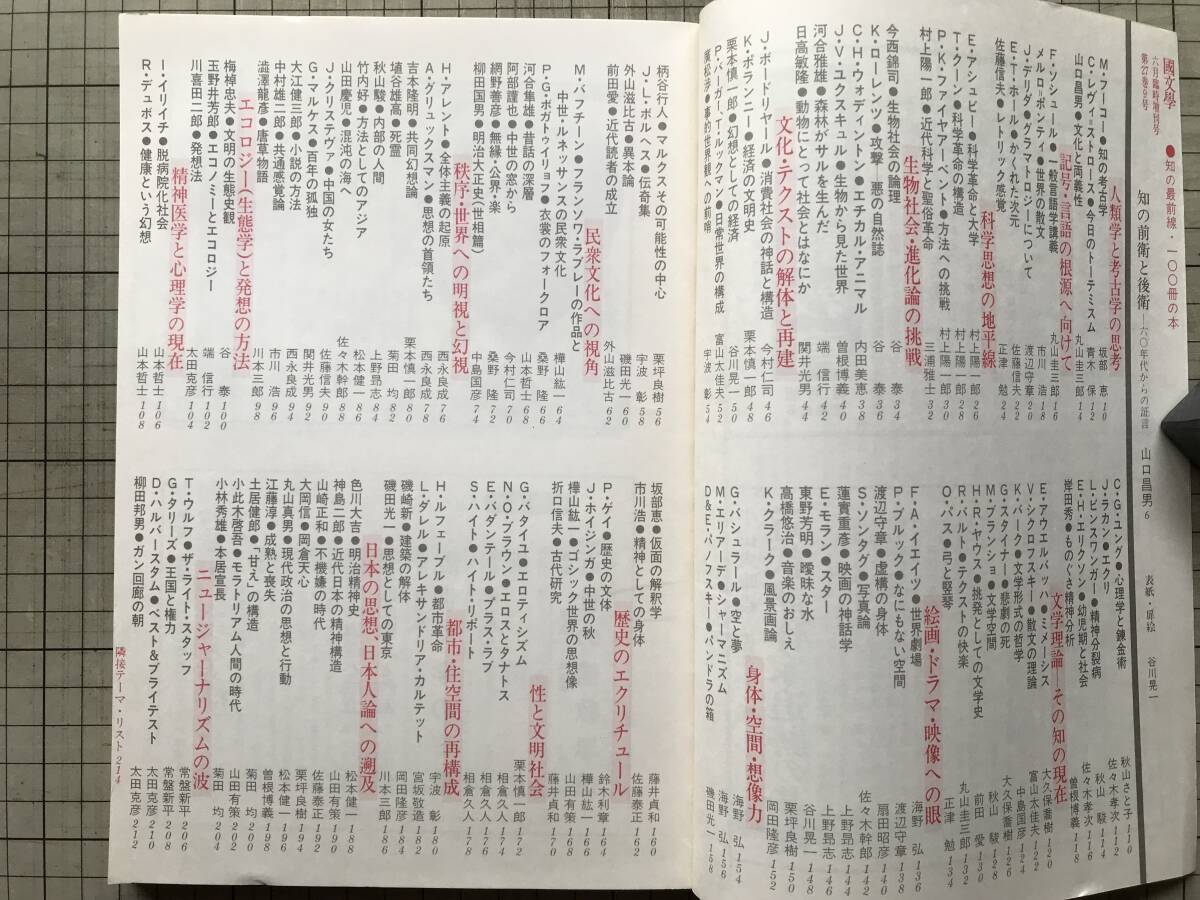 國文學
六月臨時増刊号
第27巻8号
●知の最前線・一〇〇冊の本
知の前衛と後衛―六〇年代からの証言 山口昌男 6
表紙・扉絵 谷川晃一
人類学と考古学の思考
M・フーコー●知の考古学 坂部 恵 10
C・レヴィ=ストロース●今日のトーテミスム 青木 保 12
山口昌男●文化と両義性 丸山圭三郎 14
記号・言語の根源へ向けて
F・ソシュール●一般言語学講義 丸山圭三郎 16
メルロ=ポンティ●世界の散文 市川 浩 18
J・デリダ●グラマトロジーについて 渡辺守章 20
E・T・ホール●かくれた次元 佐藤信夫 22
佐藤信夫●レトリック感覚 正津 勉 24
科学思想の地平線
E・アシュビー●科学革命と大学 村上陽一郎 26
T・クーン●科学革命の構造 村上陽一郎 28
P・K・ファイヤアーベント●方法への挑戦 村上陽一郎 30
村上陽一郎●近代科学と聖俗革命 三浦雅士 32
生物社会・進化論の挑戦
今西錦司●生物社会の論理 谷 泰 34
K・ローレンツ●攻撃―悪の自然誌 谷 泰 36
C・H・ウォディントン●エチカル・アニマル 内田美恵 38
J・V・ユクスキュル●生物から見た世界 曽根博義 40
河合雅雄●森林がサルを生んだ 端 信行 42
日高敏隆●動物にとって社会とはなにか 関井光男 44
文化・テクストの解体と再建
J・ボードリヤール●消費社会の神話と構造 今村仁司 46
K・ポランニー●経済の文明史 栗本慎一郎 48
栗本慎一郎●幻想としての経済 谷川晃一 50
P・バーガー、T・ルックマン●日常世界の構成 富山太佳夫 52
廣松渉●事的世界観への前哨 宇波 彰 54
C・G・ユング●心理学と錬金術 秋山さと子 110
J・ラカン●エクリ 佐々木孝次 112
L・ビンスワンガー●精神分裂病 秋山 駿 114
E・H・エリクソン●幼児期と社会 佐々木孝次 116
岸田秀●ものぐさ精神分析 曽根博義 118
文学理論―その知の現在
E・アウエルバッハ●ミメーシス 大久保喬樹 120
V・シクロフスキー●散文の理論 富山太佳夫 122
K・バーク●文学形式の哲学 中島国彦 124
G・スタイナー●悲劇の死 大久保喬樹 126
M・ブランショ●文学空間 秋山 駿 128
H・R・ヤウス●挑発としての文学史 前田 愛 130
R・バルト●テクストの快楽 丸山圭三郎 132
O・パス●弓と竪琴 正津 勉 134
絵画・ドラマ・映像への眼
F・A・イエイツ●世界劇場 海野 弘 136
P・ブルック●なにもない空間 渡辺守章 138
渡辺守章●虚構の身体 扇田昭彦 140
S・ソンタグ●写真論 佐々木幹郎 142
蓮實重彥●映画の神話学 上野昻志 144
E・モラン●スター 上野昻志 146
東野芳明●曖昧な水 谷川晃一 148
高橋悠治●音楽のおしえ 栗坪良樹 150
K・クラーク●風景画論 岡田隆彦 152
身体・空間・想像力
G・バシュラール●空と夢 海野 弘 154
M・エリアーデ●シャーマニズム 海野 弘 156
D&E・パノフスキー●パンドラの箱 磯田光一 158
柄谷行人●マルクスその可能性の中心 栗坪良樹 56
J・L・ボルヘス●伝奇集 宇波 彰 58
外山滋比古●異本論 磯田光一 60
前田愛●近代読者の成立 外山滋比古 62
民衆文化への視角
M・バフチーン●フランソワ・ラブレーの作品と
中世・ルネッサンスの民衆文化 樺山紘一 64
P・G・ボガトゥイリョフ●衣裳のフォークロア 桑野 隆 66
河合隼雄●昔話の深層 山本哲士 68
阿部謹也●中世の窓から 今村仁司 70
網野善彦●無縁・公界・楽 桑野 隆 72
柳田国男●明治大正史(世相篇) 中島国彦 74
秩序・世界への明視と幻視
H・アレント●全体主義の起原 西永良成 76
A・グリュックスマン●思想の首領たち 西永良成 78
吉本隆明●共同幻想論 栗本慎一郎 80
埴谷雄高●死霊 菊田 均 82
秋山駿●内部の人間 上野昻志 84
竹内好●方法としてのアジア 松本健一 86
山田慶児●混沌の海へ 佐々木幹郎 88
J・クリステヴァ●中国の女たち 佐藤信夫 90
G・マルケス●百年の孤独 関井光男 92
大江健三郎●小説の方法 西永良成 94
中村雄二郎●共通感覚論 市川 浩 96
澁澤龍彥●唐草物語 川本三郎 98
エコロジー(生態学)と発想の方法
梅棹忠夫●文明の生態史観 谷 泰 100
玉野井芳郎●エコノミーとエコロジー 端 信行 102
川喜田二郎●発想法 太田克彦 104
精神医学と心理学の現在
I・イリイチ●脱病院化社会 山本哲士 106
R・デュボス●健康という幻想 山本哲士 108
坂部恵●仮面の解釈学 藤井貞和 160
市川浩●精神としての身体 佐藤泰正 162
歴史のエクリチュール
P・ゲイ●歴史の文体 鈴木利章 164
J・ホイジンガ●中世の秋 樺山紘一 166
樺山紘一●ゴシック世界の思想像 山田有策 168
折口信夫●古代研究 藤井貞和 170
性と文明社会
G・バタイユ●エロティシズム 栗本慎一郎 172
N・O・ブラウン●エロスとタナトス 相倉久人 174
E・バダンテール●プラス・ラブ 相倉久人 176
S・ハイト●ハイト・リポート 相倉久人 178
都市・住空間の再構成
H・ルフェーブル●都市革命 宇波 彰 180
L・ダレル●アレキサンドリア・カルテット 宮坂敬造 182
磯崎新●建築の解体 岡田隆彦 184
磯田光一●思想としての東京 川本三郎 186
日本の思想、日本人論への遡及
色川大吉●明治精神史 松本健一 188
神島二郎●近代日本の精神構造 山田有策 190
山崎正和●不機嫌の時代 佐藤泰正 192
大岡信●岡倉天心 栗坪良樹 194
丸山真男●現代政治の思想と行動 松本健一 196
江藤淳●成熟と喪失 曽根博義 198
土居健郎●「甘え」の構造 栗坪良樹 200
小此木啓吾●モラトリアム人間の時代 山田有策 202
小林秀雄●本居宣長 菊田 均 204
ニュージャーナリズムの波
T・ウルフ●ザ・ライト・スタッフ 常盤新平 206
G・タリーズ●王国と権力 常盤新平 208
D・ハルバースタム●ベスト&ブライテスト 太田克彦 210
柳田邦男●ガン回廊の朝 太田克彦 212
隣接テーマ・リスト 214